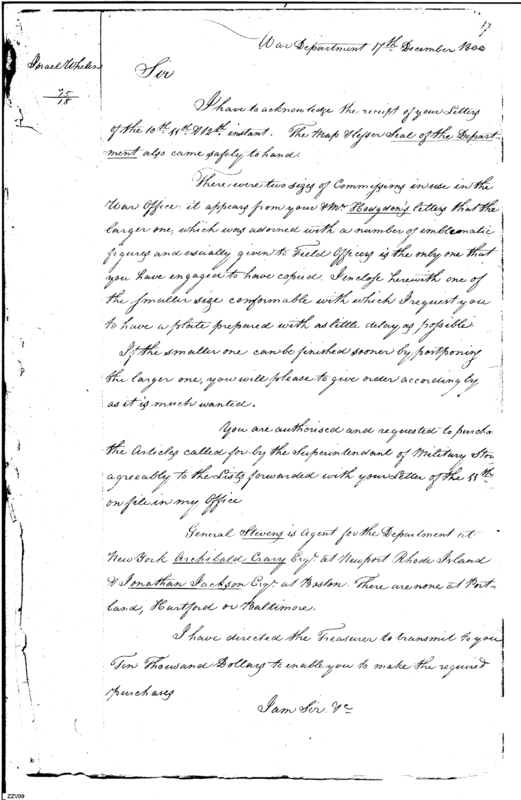 17
War Department 17th December 1800
Israel Whelen
75/18
Sir
I have to acknowledge the receipt of your Letters
of the 10th 11th & 12th instant. The Map & lesser Seal of the Depart-
ment also came safely to hand.
There were two sizes of Commissions in use in the
War Office: it appears from your & Mr. Hodgdon's letters that the
larger one, which was adorned with a number of imblematic
figures and usually given to Field Officers is the only one that
you have engaged to have copied. I inclose herewith one of
the smaller size conformable with which I request you
to have a plate prepared with as little delay as possible
If the smaller one can be finished sooner by postponing
the larger one, you will please to give order accordingly
as it is much wanted.
You are authorised and requested to purcha
the Articles called for by the Superintendant of Military Stor
agreeably to the Lists forwarded with your Letter of the 11th
on file in my Office
General Stevens is Agent for the Department at
New York Archibald Crary Esqr. at Newport Rhode Island
& Jonathan Jackson Esqr. at Boston. There are none at Port-
land, Hartford or Baltimore.
I have directed the Treasurer to transmit to you
Ten Thousand Dollars to enable you to make the required
purchases
I am Sir &c
ZZV09